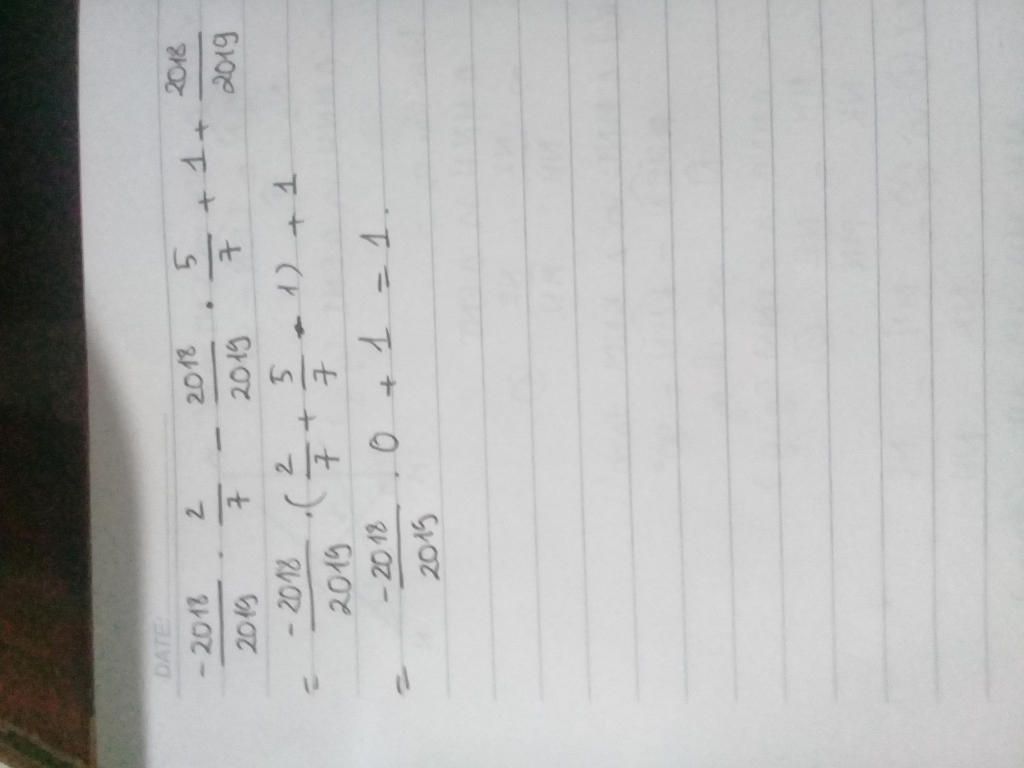 DATE:
-2018/2019 . 2/7 - 2018/2019 . 5/7 + 1 + 2018/2019
= -2018/2019 .( 2/7 + 5/7 - 1) + 1
= -2018/2019 . 0 + 1 = 1.